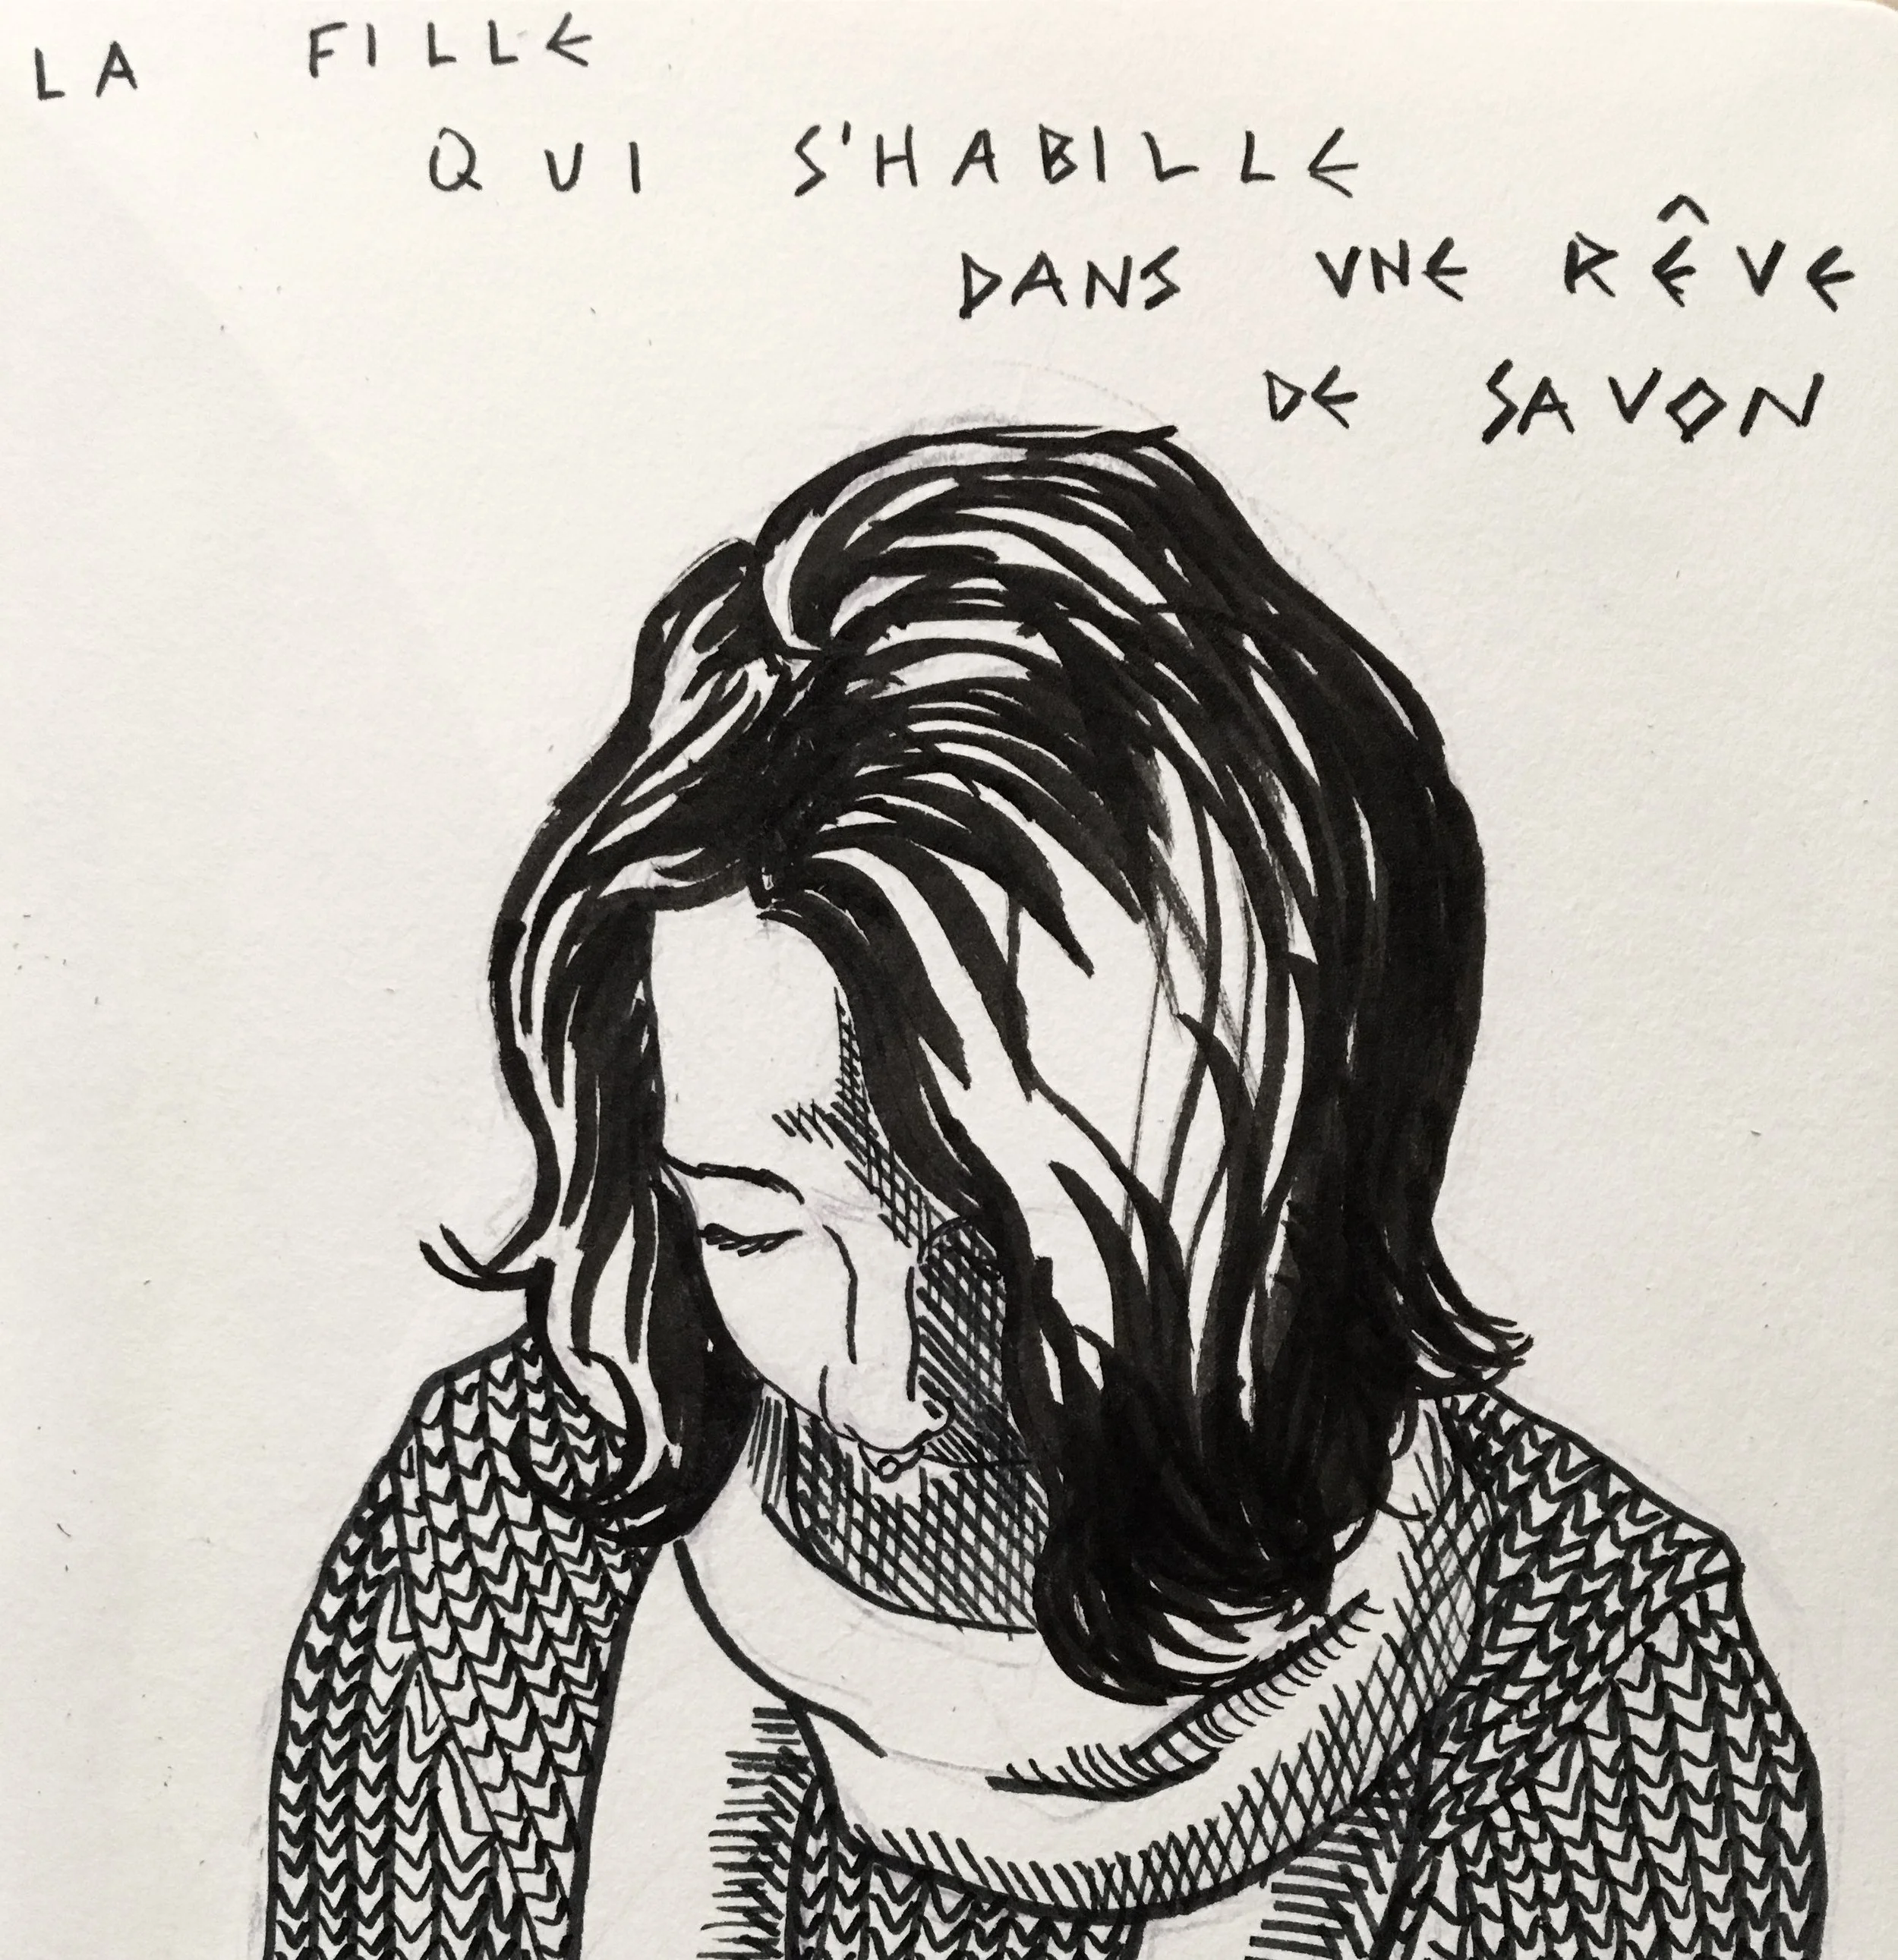 LA FILLE
QUI S'HABILLE
DANS UNE RÊVE
DE SAVON